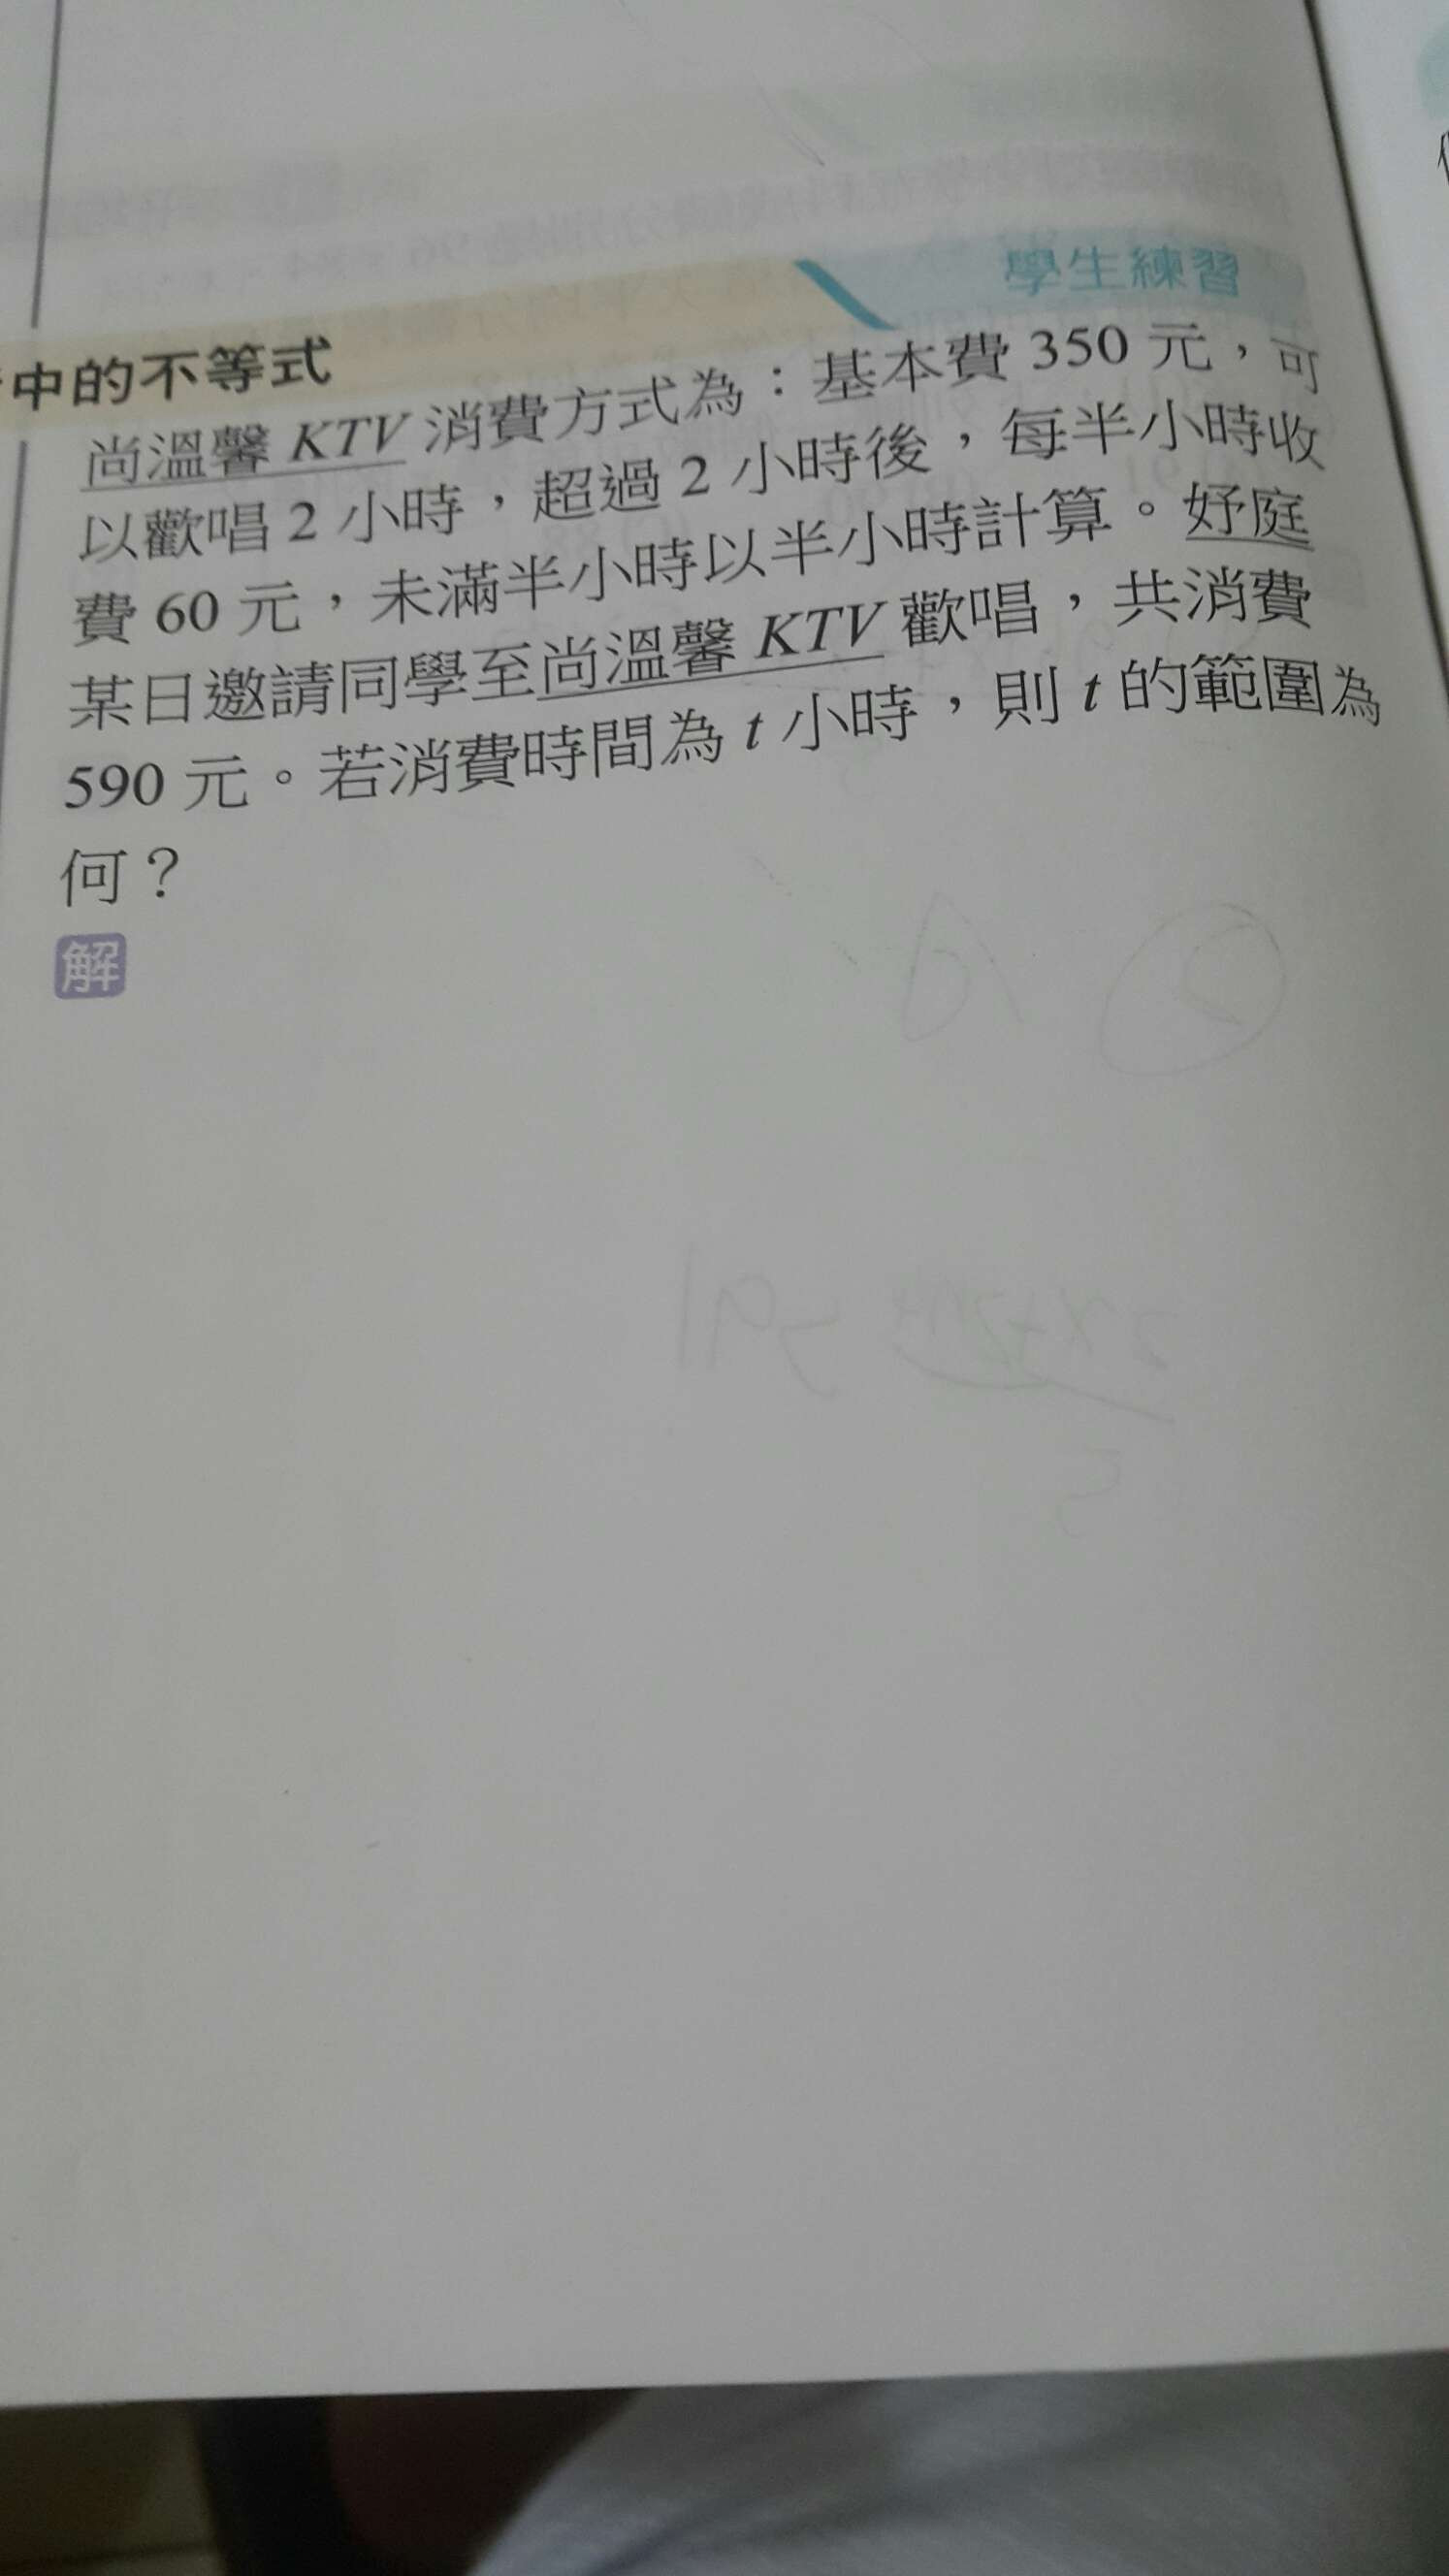 學生練習
中的不等式
尚溫馨 KTV 消費方式為：基本費 350 元，可
以歡唱 2 小時，超過 2 小時後，每半小時收
費 60 元，未滿半小時以半小時計算。妤庭
某日邀請同學至尚溫馨 KTV 歡唱，共消費
590 元。若消費時間為 t 小時，則 t 的範圍為
何？
解